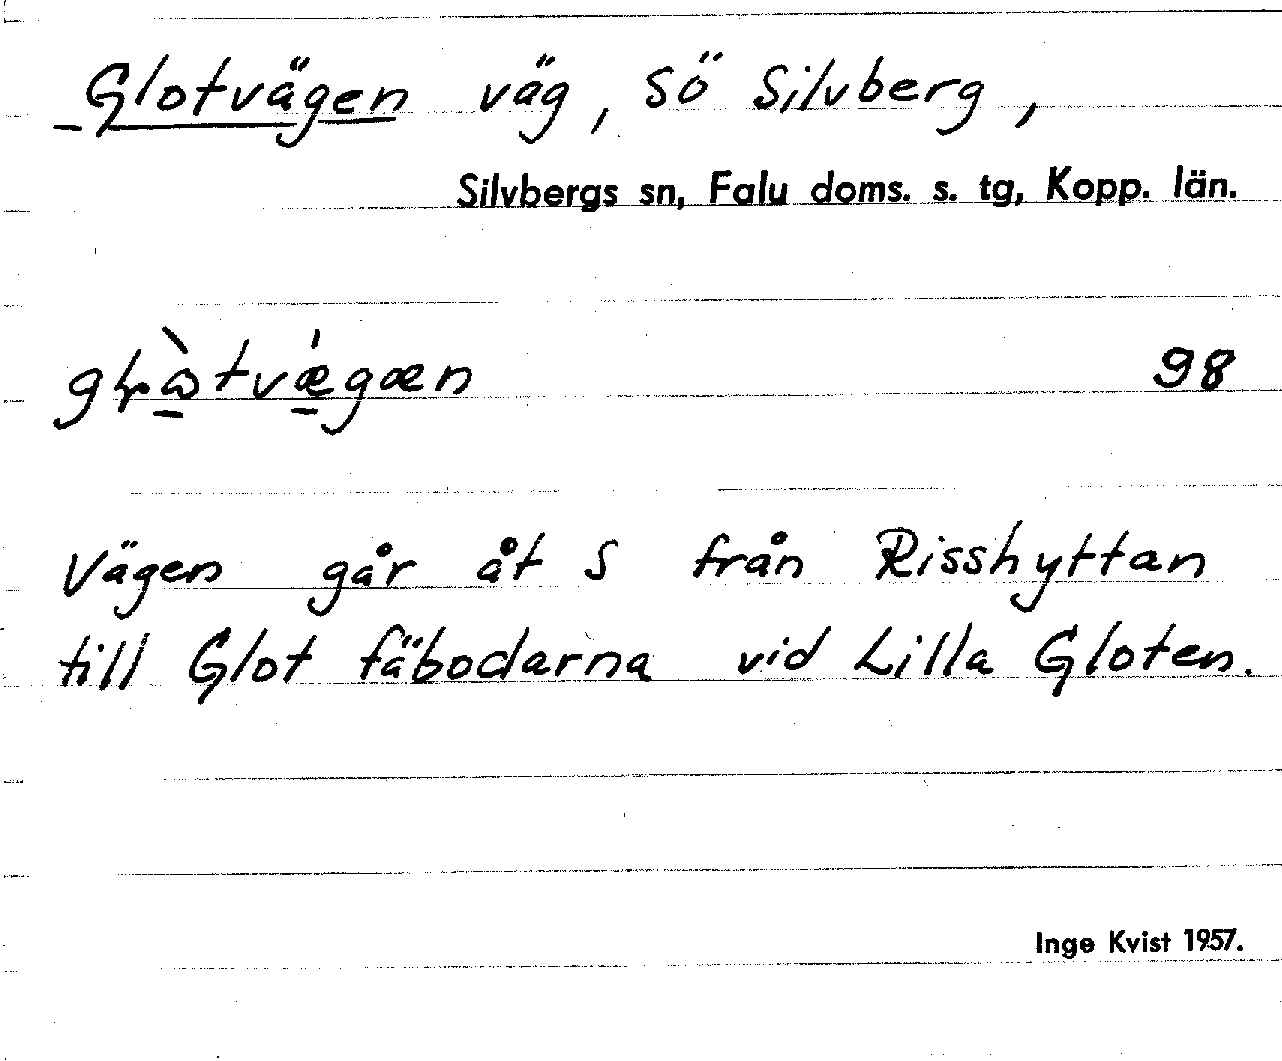 Glotvägen väg, Sö Silvberg,
Silvbergs sn, Falu doms. s. tg, Kopp. län.
98
Vägen går åt S från Risshyttan
till Glot fäbodarna vid Lilla Gloten.
Inge Kvist 1957.